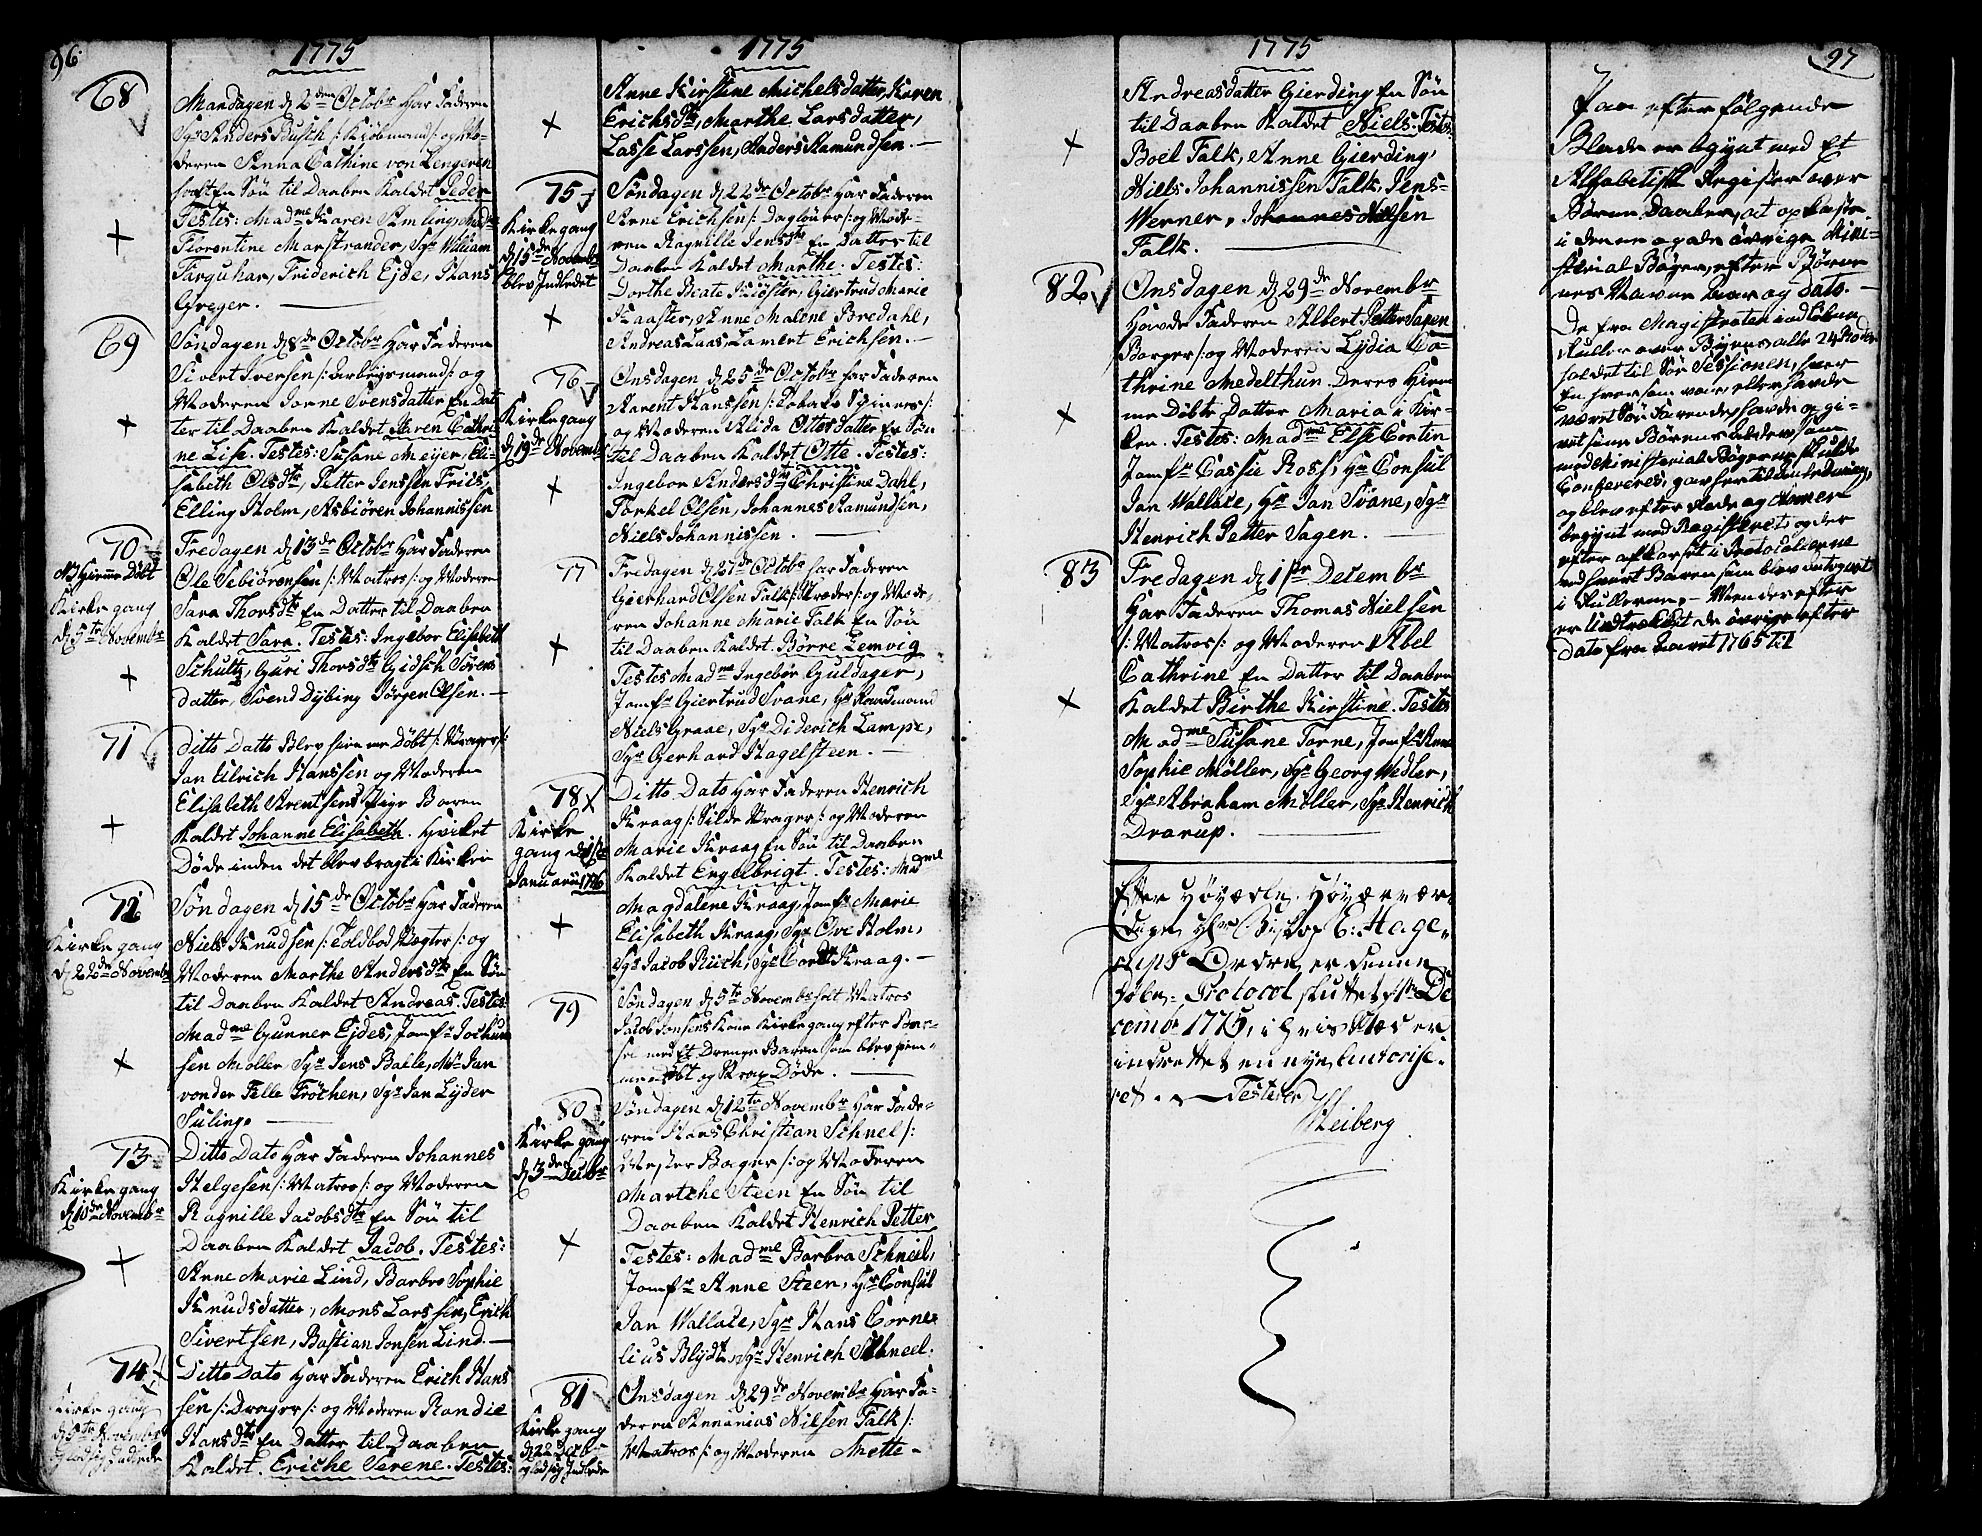 96.
1775
68
Mandagen d 2den Octobr Har Faderen
Sgr Anders Busch /: Kiøbmand :/ og Mo-
deren Anna Cathine von Lengeren
født En Søn til Daaben Kaldet Peder
Testes: Madme Karen
Florentine Marstrander, Sgr William
Farquhar, Friderich Ejde, Hans
Greger.
69
Søndagen d 8de Octobr Har Faderen
Sivert Iversen /: Arbeigsmand :/ og
Moderen Jorne Svensdatter En Dat-
ter til Daaben Kaldet Karen Cathri-
ne Lise. Testes: Susane Meijer, Eli-
sabeth Olsdtr, Petter Jenssen Friis,
Elling Holm, Asbiören Johannissen
70
NB Hiemme Døbt
Kirke gang
d 5te Novembr
Fredagen d 13de Octobr Har Faderen
Ole Sebiörensen /: Matros :/ og Moderen
Sara Thorsdtr En Datter til Daaben
Kaldet Sara. Testes: Ingebor Elisabeth
Schultz, Guri Thorsdtr Gidsch Sørens
datter, Svend Dybing Jörgen Olsen.
71
Ditto Datto Blev hiemme Døbt /: Drager :/
Jan Ulrich Hanssen og Moderen
Elisabeth Arentsens Pige Baren
Kaldet Johanne Elisabeth. Hvilket
Døde inden det blev bragt i Kirken
72
Kirke gang
d 22de Novembr
Søndagen d 15de Octobr Har Faderen
Niels Knudsen /: Toldbod Bogter :/ og
Moderen Marthe Andersdtr En Søn
til Daaben Kaldet Andreas. Testes
Madme Gunner Ejdes, Jomfr Jochum
sen Møller Sgr Jens Balle, Mr Jan
von der Felle Fröchen, Sgr Jan Lyder
Süling.
73
Kirke gang
d 10de Novembr
Ditto Dato Har Faderen Johannes
Helgesen /: Matros :/ og Moderen
Ragnille Jacobsdtr En Søn til
Daaben Kaldet Jacob. Testes:
Anne Marie Lind, Barbro Sophie
Knudsdatter, Mons Larssen, Erich
Sivertsen, Bastian Jonsen Lind.
74
Kirke gang
d 5te Novembr
og lod sig Indlede
Ditto Dato Har Faderen Erich Hans
sen /: Drager :/ og Moderen Randie
Hansdtr En Datter til Daaben
Kaldet. Eriche Serene. Testes:
1775
Anne Kirstine Michelsdatter, Karen
Erichsdtr, Marthe Larsdatter,
Lasse Larssen, Anders Aamundsen.
75
Kirke gang
d 15de Novembr
blev Indledet
Søndagen d 22de Octobr Har Faderen
Arne Erichsen /: Dagløner :/ og Mode-
ren Ragnille Jensdtr En Datter til
Daaben Kaldet Marthe. Testes:
Dorthe Beate Kiöster, Giertrud Marie
Kaaster, Anne Malene Bredahl,
Andreas Laas Lamert Erichsen.
76
Kirke gang
d 19de Novembr
Onsdagen d 25de Octobr har Faderen
Aarent Hanssen /: Tobaks Spinner :/
og Moderen Alida Ottesdatter En Søn
til Daaben Kaldet Otte. Testes:
Ingebor Andersdtr Christine Dahl,
Torkel Olsen, Johannes Aamundsen,
Niels Johannissen.
77
Fredagen d 27de Octobr har Faderen
Gierhard Olsen Falk /: Skræder :/ og Mode-
ren Johanne Marie Falk En Søn
til Daaben Kaldet. Børre Lemvig
Testes Madme Ingebør Guldager,
Jomfr Giertrud Svane, Hr Raadmand
Niels Graae, Sgr Diderich Lampe,
Sgr Gerhard Hagelsteen.
78
Kirke
gang d 1ste
Januarii 1776
Ditto Dato Har Faderen Henrich
Kraag /: Silde Vrager :/ og Moderen
Marie Kraag En Søn til Daaben
Kaldet Engelbrigt. Testes: Madme
Magdalene Kraag, Jomfr Marie
Elisabeth Kraag, Sgr Ove Holm,
Sgr Jacob Riich, Sgr Cordt Kraag.
79
Søndagen d 5te Novembr holt Matros
Jacob Jonsens Kone Kirkegang efter Bar-
sel med Et Drenge Baren som blev hiem-
me døbt og strax Døde.
80
Kirke gang
d 3den Decbr
Søndagen d 12te Novembr Har Fade-
ren Hans Christian Schnel /:
Mester Bager :/ og Moderen
Marthe Steen En Søn til
Daaben Kaldet Henrich Petter
Testes: Madme Barbra Schneel,
Jomfr Anne Steen, Hr Consul
Jan Wallace, Sgr Hans Corne-
lius Blydt, Sgr Henrich Schneel.
81
Kirke gang
d 22 Decbr
og lod sig Indlede
Onsdagen d 29de Novembr Har Fa-
deren Annanias Nilsen Falk /:
Matros :/ og Moderen Mette-
1775
Andreasdatter Gierding En Søn
til Daaben Kaldet Niels: Testes:
Boel Falk, Anne Gierding,
Niels Johannissen Falk, Jens
Werner, Johannes Nielsen
Falk.
82
Onsdagen d 29de Novembr
Havde Faderen Albert Petter Sagen
Borger :/ og Moderen Lydia Ca-
thrine Medelthun Deres Hiem
me Døbte Datter Maria i Kir-
ken. Testes: Madme Else Contin
Jomfr Cassie Ross, Hr Consul
Jan Wallace, Hr Jan Svane, Sgr
Henrich Petter Sagen.
83
Fredagen d 1ste Decembr
Har Faderen Thomas Nielsen
/: Matros :/ og Moderen Abel
Cathrine En Datter til Daaben
Kaldet Birthe Kirstine. Testes
Madme Susane Torne, Jomfr Anne
Sophie Möller, Sgr Georg Wedler,
Sgr Abraham Möller, Sgr Henrich
Drarup.
Efter Høyædle, Høyærvær
dige Hr Biskop E: Hage-
rups Ordre er denne
Døbe-Protocol sluttet 1ste De
cembr 1775, i hvis stæd er
indrettet en nye authorise-
ret. Testerer
Heiberg
97
Paa efterfølgende
Blade er begynt med Et
Alfabetisk Register over
Børen Daaber, at opkaste
i denne og de övrige Mini-
sterial Bøger, efter Børne-
nes Navne Aar og Dato.
De fra Magistraten indkomne
Ruller over Byens alle 24 Roder
holdet til Søe Sessionen, hvor
En hver som var eller havde
været Søe Farende, havde opgi-
vet sine Børens Alder, som
med Ministerial Bøgerne skulde
Confereres, gav her til Anledning,
og blev efter Rode og Numer
begynt med Registeret, og der
efter afkorset i Protocollerne
ved hvert Baren som blev antegnet
i Rullerne. Men derefter
er Uddraget de øvrige efter
Dato fra Aaret 1765 til